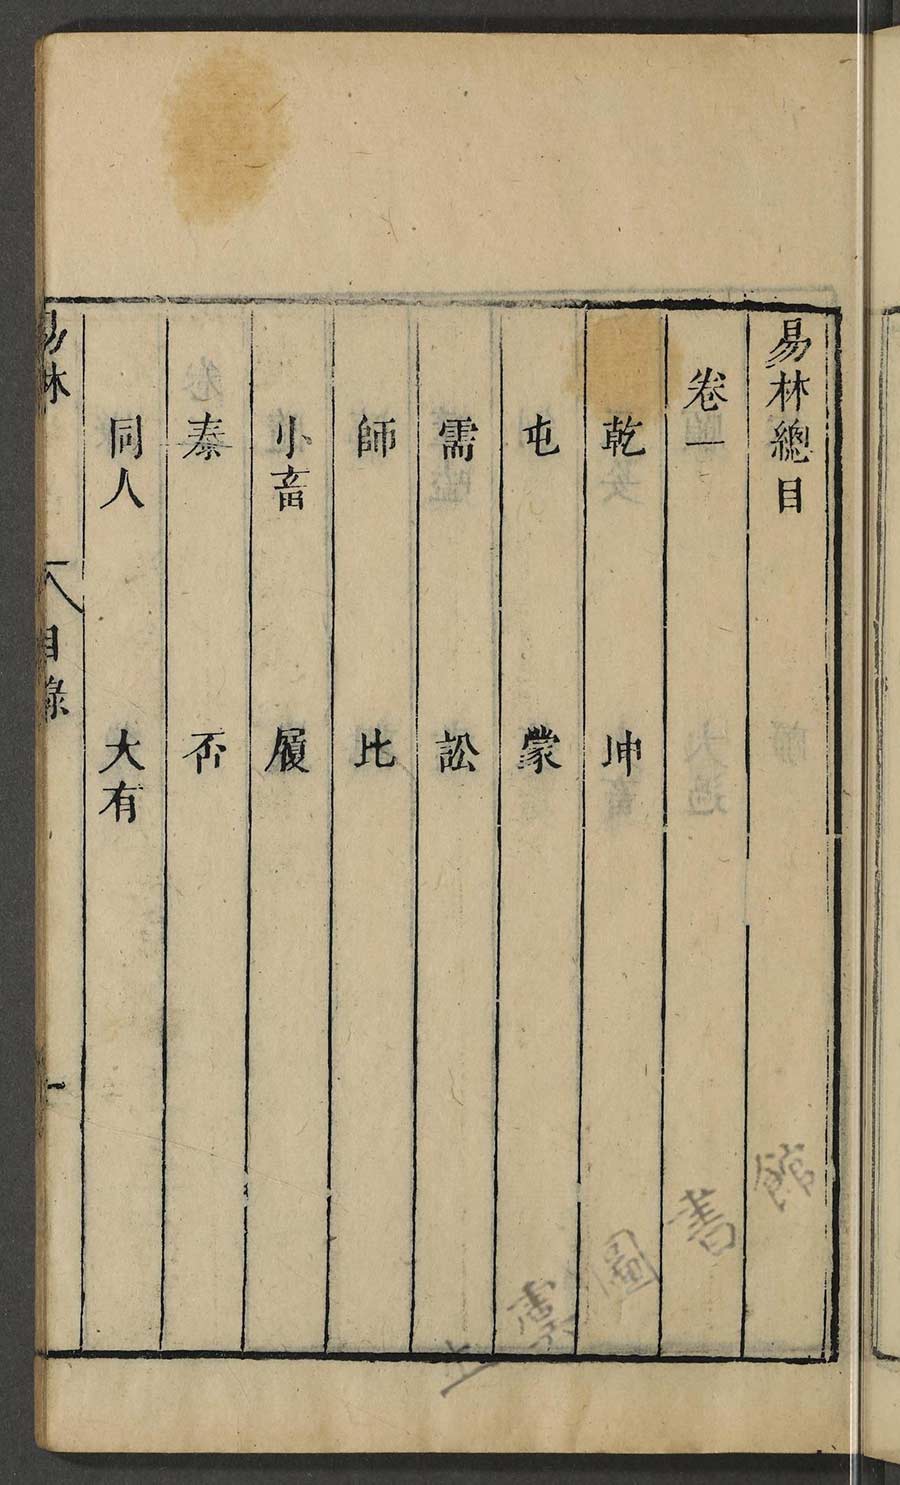 易林總目
卷一
乾 坤
屯 蒙
需 訟
師 比
小畜 履
泰 否
同人 大有
易林 目錄 一
圖書館